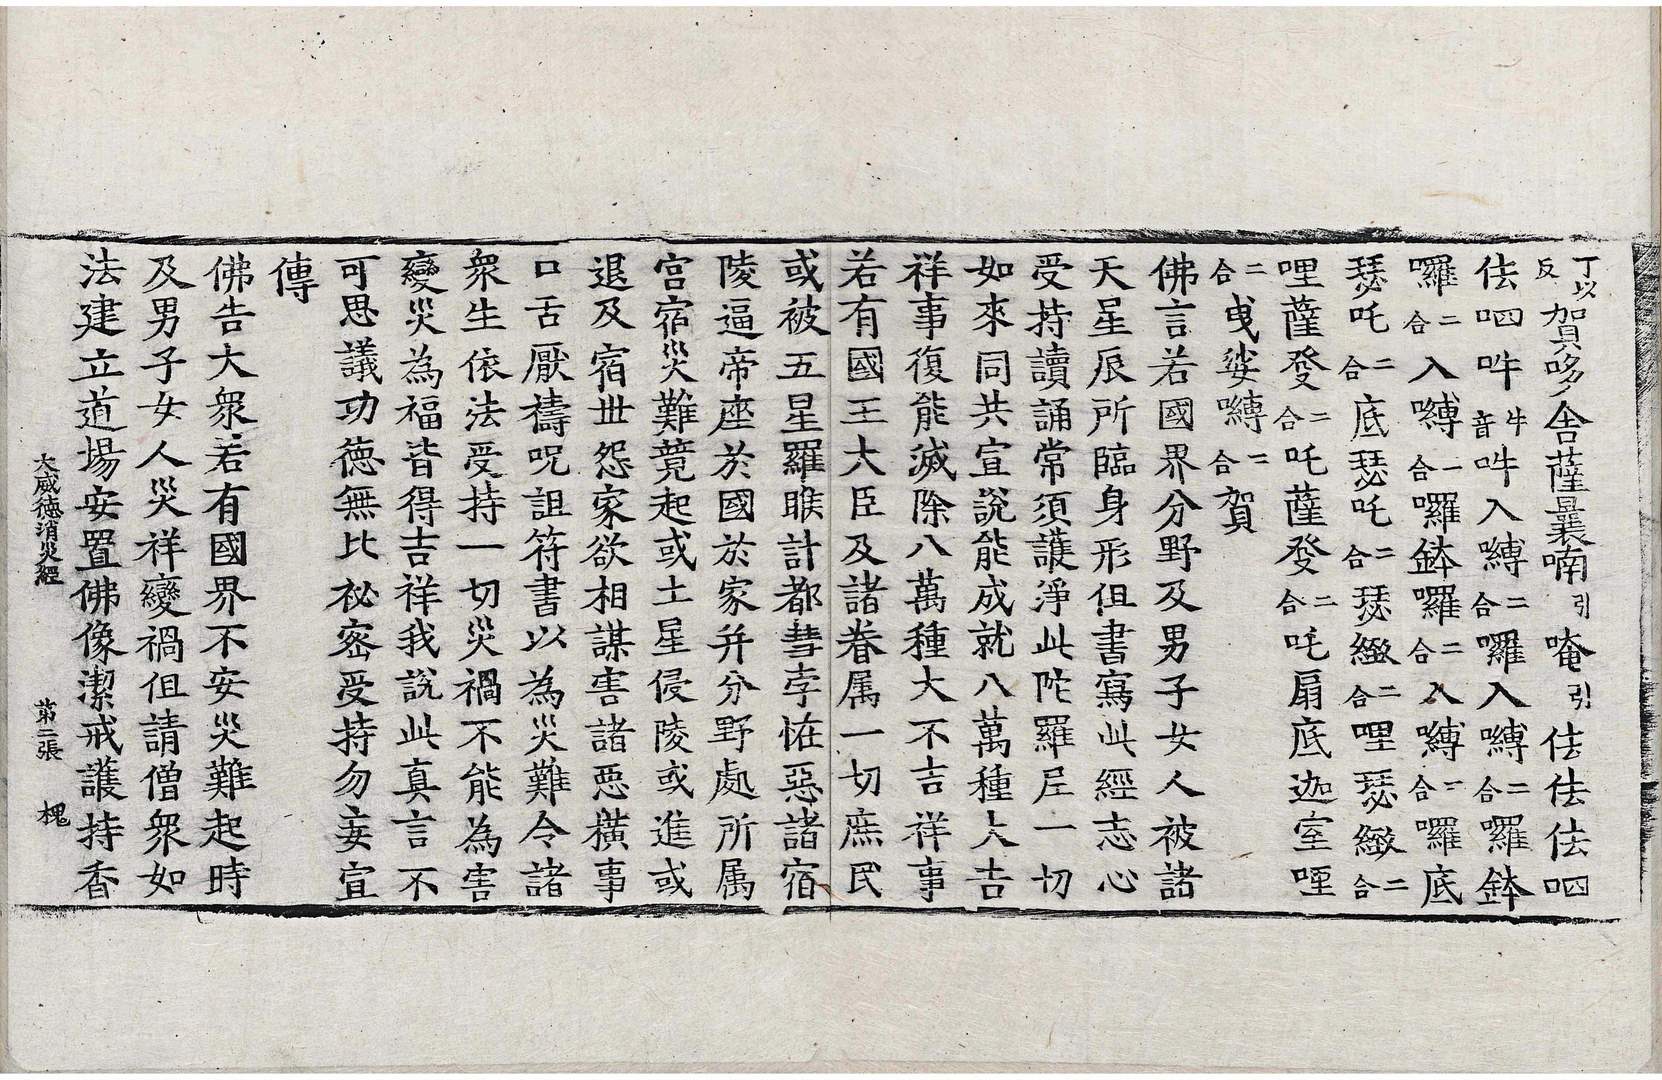 丁以反賀哆舍薩曩喃引唵引佉佉佉呬
佉呬吽牛音吽入嚩二合囉入嚩二合囉鉢
囉二合入嚩二合囉鉢囉二合入嚩二合囉底
瑟吒二合底瑟吒二合瑟緻二合哩瑟緻二合
哩薩癹二合吒薩癹二合吒扇底迦室哩
二合曳娑嚩二合賀
佛言若國界分野及男子女人被諸
天星辰所臨身形但書寫此經志心
受持讀誦常須護淨此陀羅尼一切
如來同共宣說能成就八萬種大吉
祥事復能滅除八萬種大不吉祥事
若有國王大臣及諸眷属一切庶民
或被五星羅睺計都彗孛恠惡諸宿
陵逼帝座於國於家并分野處所属
宮宿災難競起或土星侵陵或進或
退及宿世怨家欲相謀害諸惡橫事
口舌厭禱呪詛符書以為災難令諸
衆生依法受持一切災禍不能為害
變災為福皆得吉祥我說此真言不
可思議功德無比祕密受持勿妄宣
傳
佛告大衆若有國界不安災難起時
及男子女人災祥變禍但請僧衆如
法建立道場安置佛像潔戒護持香
大威德消災經 第二張 槐